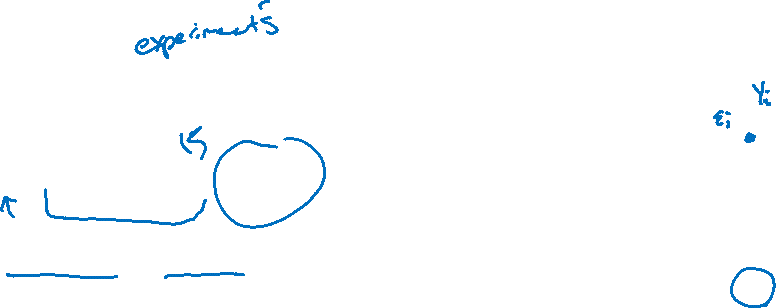 experiments
Yi
εi